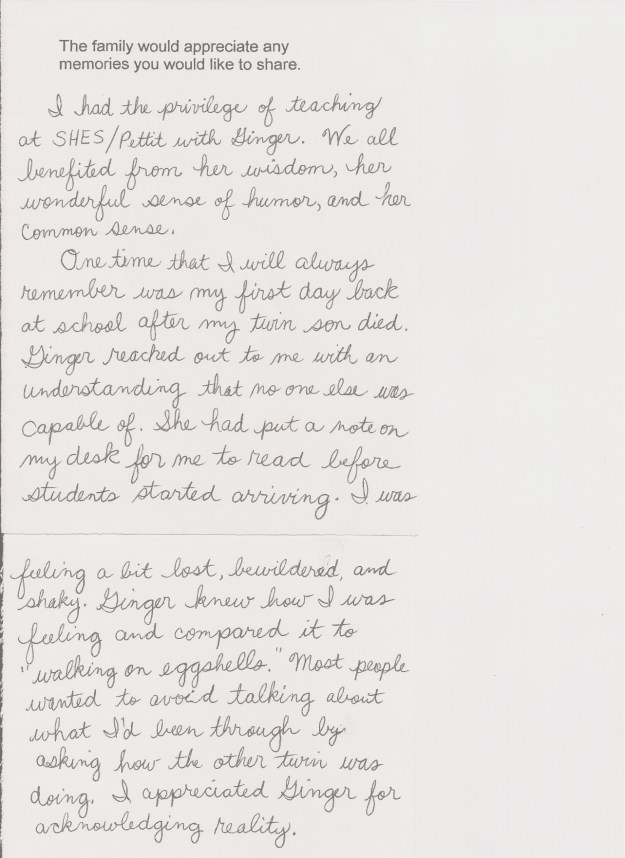 The family would appreciate any
memories you would like to share.
I had the privilege of teaching
at SHES/Pettit with Ginger. We all
benefited from her wisdom, her
wonderful sense of humor, and her
common sense.
One time that I will always
remember was my first day back
at school after my twin son died.
Ginger reached out to me with an
understanding that no one else was
capable of. She had put a note on
my desk for me to read before
students started arriving. I was
feeling a bit lost, bewildered, and
shaky. Ginger knew how I was
feeling and compared it to
"walking on eggshells." Most people
wanted to avoid talking about
what I'd been through by
asking how the other twin was
doing. I appreciated Ginger for
acknowledging reality.